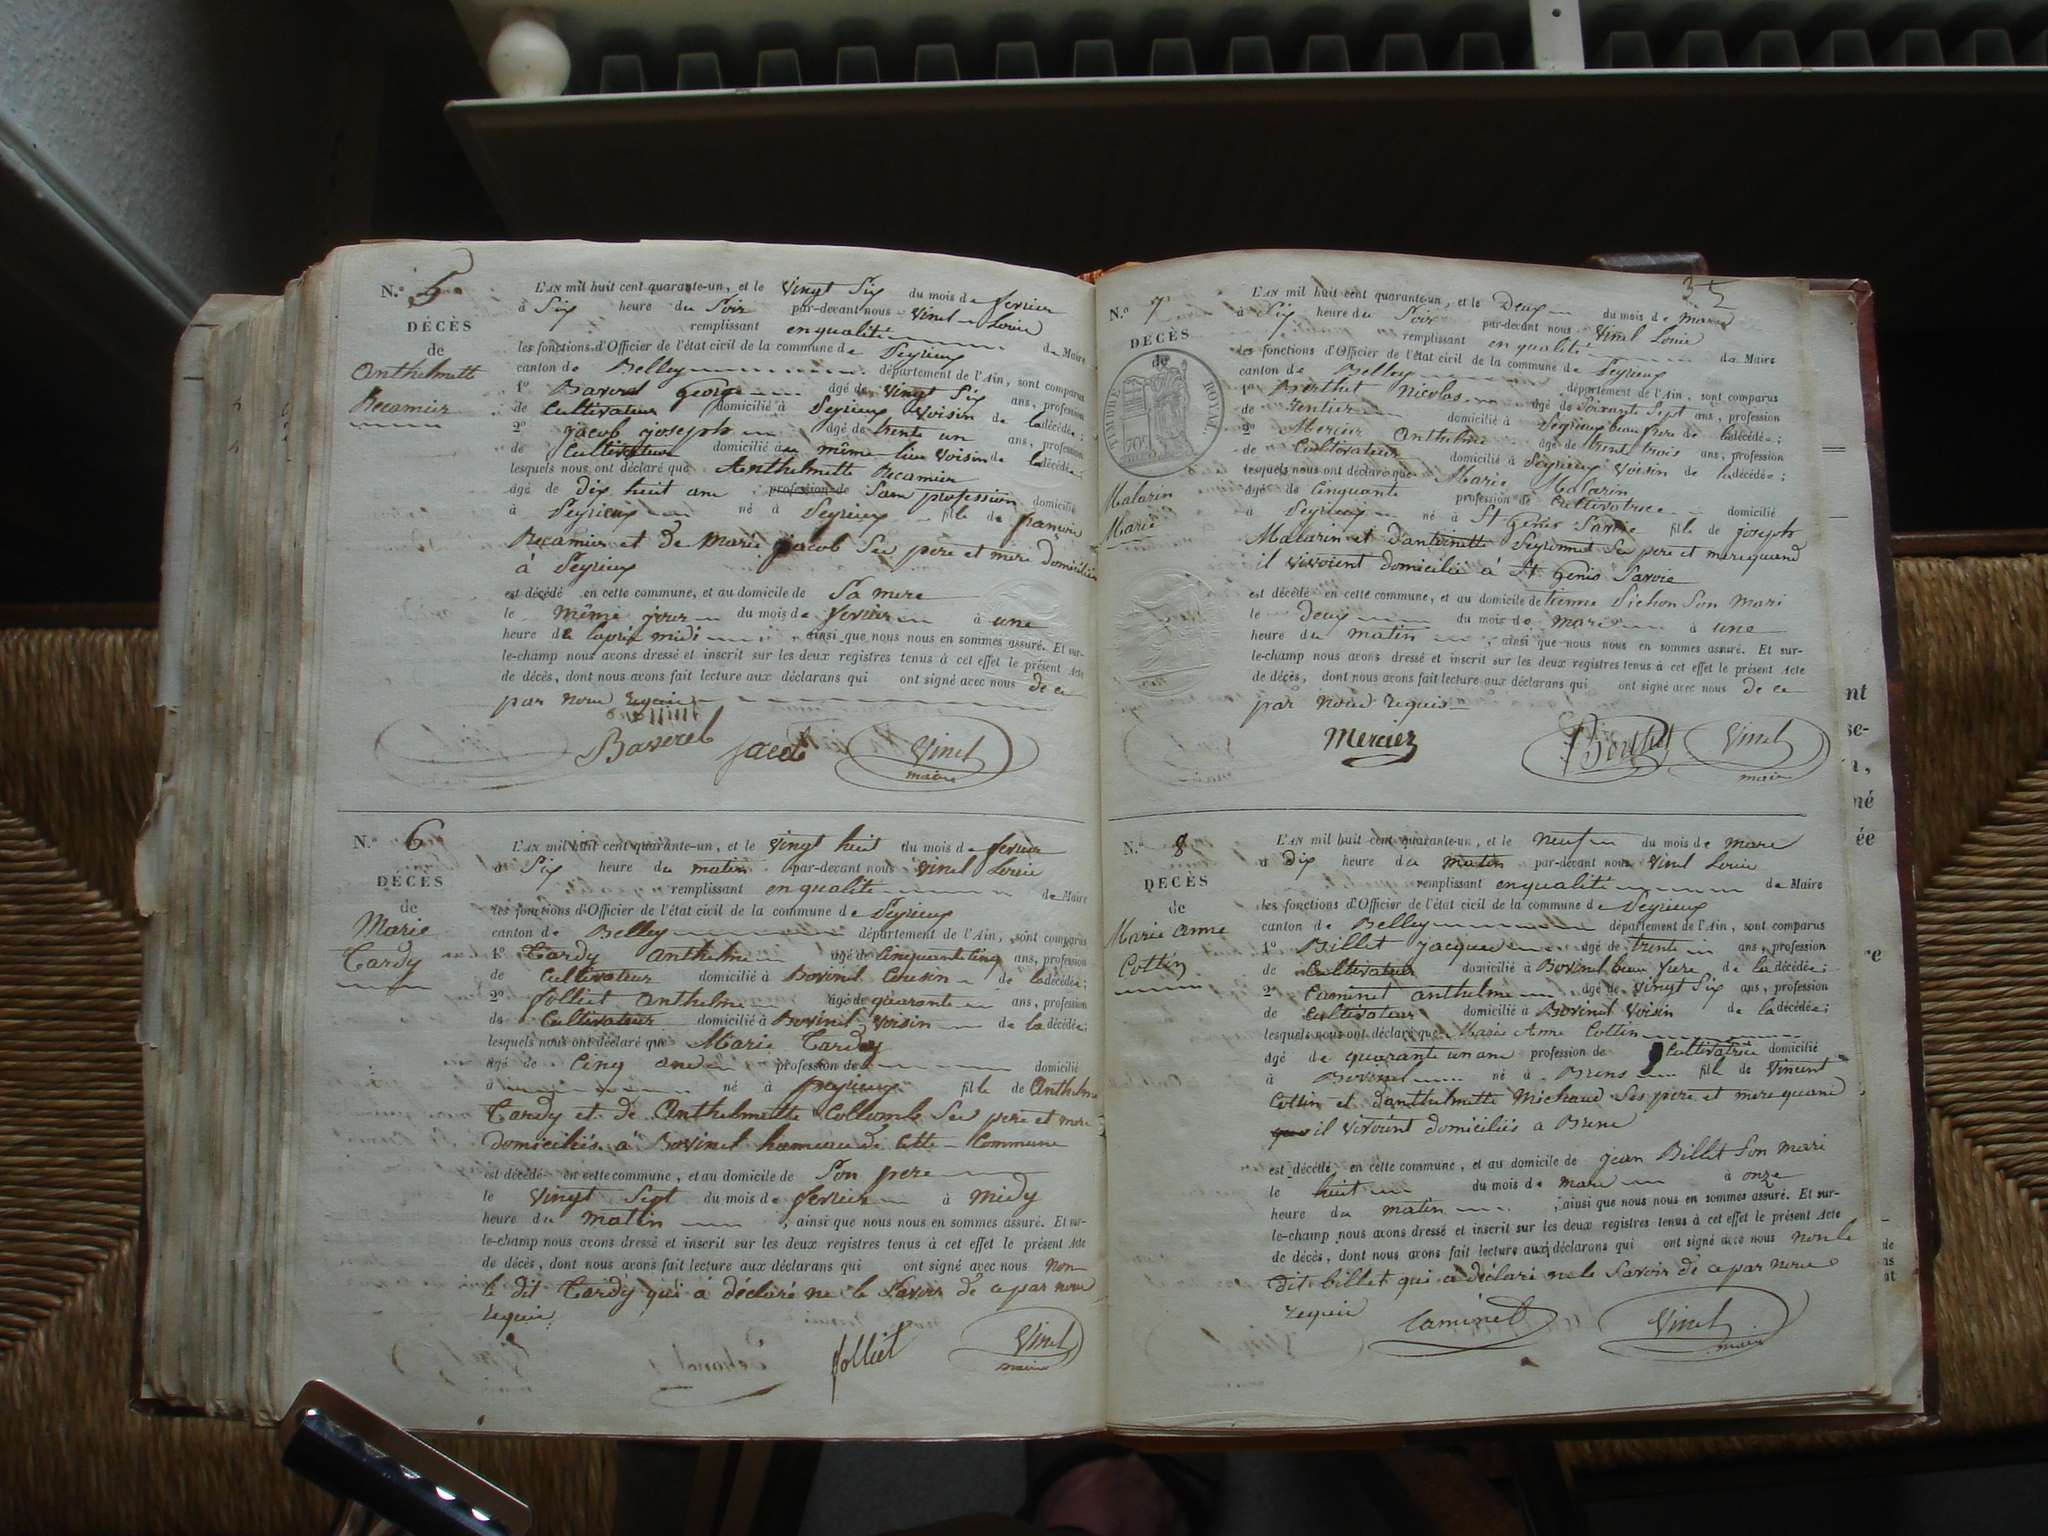 N.º 5
DÉCÈS
de
Anthelmette
Recamier
L'AN mil huit cent quarante-un, et le vingt six du mois de fevrier
à Six heure du Soir par-devant nous Vinel Louis
remplissant en qualité de Maire
les fonctions d'Officier de l'état civil de la commune de Peyrieux
canton de Belley département de l'Ain, sont comparus
1º Baverel george âgé de vingt Six ans, profession
de Cultivateur domicilié à Peyrieux Voisin de la décédée;
2º jacob joseph âgé de trente un ans, profession
de Cultivateur domicilié au même lieu Voisin de la décédée;
lesquels nous ont déclaré que Anthelmette Recamier
âgé de dix huit ans profession de Sans profession domicilié
à Peyrieux né à Peyrieux fille de françois
Recamier et de Marie jacob Ses pere et mere domiciliés
à Peyrieux
est décédé en cette commune, et au domicile de Sa mere
le même jour du mois de fevrier à une
heure de laprès midi ainsi que nous nous en sommes assuré. Et sur-
le-champ nous avons dressé et inscrit sur les deux registres tenus à cet effet le présent Acte
de décès, dont nous avons fait lecture aux déclarans qui ont signé avec nous de ce
par nous requis
Baverel jacob Vinel
maire
N.º 6
DÉCÈS
de
Marie
Tardy
L'AN mil huit cent quarante-un, et le vingt huit du mois de fevrier
à Six heure du matin par-devant nous Vinel Louis
remplissant en qualité de Maire
les fonctions d'Officier de l'état civil de la commune de Peyrieux
canton de Belley département de l'Ain, sont comparus
1º Tardy Anthelme âgé de Cinquante cinq ans, profession
de Cultivateur domicilié à Bovinel Cousin de la décédée;
2º folliet Anthelme âgé de quarante ans, profession
de Cultivateur domicilié à Bovinel Voisin de la décédée;
lesquels nous ont déclaré que Marie Tardy
âgé de Cinq ans profession de domicilié
à né à peyrieux fille de Anthelme
Tardy et de Anthelmette Collomb Ses pere et mere
domiciliés à Bovinel hameau de Cette Commune
est décédé en cette commune, et au domicile de Son pere
le vingt Sept du mois de fevrier à midy
heure du matin, ainsi que nous nous en sommes assuré. Et sur-
le-champ nous avons dressé et inscrit sur les deux registres tenus à cet effet le présent Acte
de décès, dont nous avons fait lecture aux déclarans qui ont signé avec nous non
le dit Tardy qui a déclaré ne le Savoir de ce par nous
requis
folliet Vinel
maire
35
N.º 7
DÉCÈS
de
TIMBRE ROYAL
Malarin
Marie
L'AN mil huit cent quarante-un, et le Deux du mois de mars
à Six heure du Soir par-devant nous Vinel Louis
remplissant en qualité de Maire
les fonctions d'Officier de l'état civil de la commune de Peyrieux
canton de Belley département de l'Ain, sont comparus
1º Berthet Nicolas âgé de Soixante Sept ans, profession
de Rentier domicilié à Peyrieux beau frere de la décédée;
2º Mercier Anthelme âgé de trente trois ans, profession
de Cultivateur domicilié à Peyrieux Voisin de la décédée;
lesquels nous ont déclaré que Marie Malarin
âgé de Cinquante profession de Cultivatrice domicilié
à Peyrieux né à St Genis Savoie fille de joseph
Malarin et dantoinette Peyronnet Ses pere et mere quand
il vivoient domicilié à St Genis Savoie
est décédé en cette commune, et au domicile de Etienne Pichon Son Mari
le deux du mois de mars à une
heure du matin, ainsi que nous nous en sommes assuré. Et sur-
le-champ nous avons dressé et inscrit sur les deux registres tenus à cet effet le présent Acte
de décès, dont nous avons fait lecture aux déclarans qui ont signé avec nous de ce
par nous requis
Mercier Berthet Vinel
maire
N.º 8
DÉCÈS
de
Marie anne
Cottin
L'AN mil huit cent quarante-un, et le neuf du mois de mars
à dix heure du matin par-devant nous Vinel Louis
remplissant en qualité de Maire
les fonctions d'Officier de l'état civil de la commune de Peyrieux
canton de Belley département de l'Ain, sont comparus
1º Billet jacques âgé de trente ans, profession
de Cultivateur domicilié à Bovinel beau frere de la décédée;
2º Caminet anthelme âgé de vingt Six ans, profession
de Cultivateur domicilié à Bovinel Voisin de la décédée;
lesquels nous ont déclaré que Marie Anne Cottin
âgé de quarante un ans profession de Cultivatrice domicilié
à Bovinel né à Brens fille de Vincent
Cottin et danthelmette Michaud Ses pere et mere quand
il vivoient domiciliés a Brens
est décédé en cette commune, et au domicile de jean Billet Son mari
le huit du mois de mars à onze
heure du matin, ainsi que nous nous en sommes assuré. Et sur-
le-champ nous avons dressé et inscrit sur les deux registres tenus à cet effet le présent Acte
de décès, dont nous avons fait lecture aux déclarans qui ont signé avec nous non le
dit billet qui a déclaré ne le Savoir de ce par nous
requis
Caminet Vinel
maire